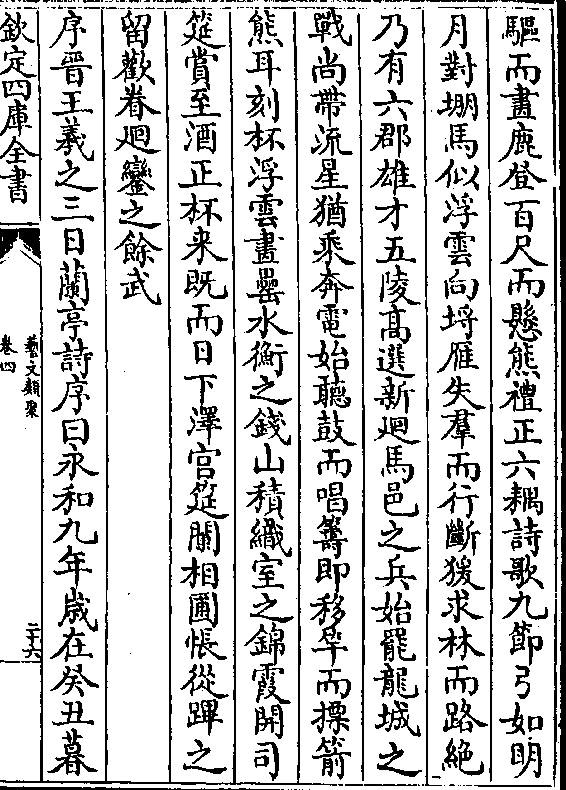 驅而畫鹿登百尺而懸熊禮正六耦詩歌九節弓如明
月對堋馬似浮雲向埒雁失羣而行斷猨求林而路絕
乃有六郡雄才五陵高選新迴馬邑之兵始罷龍城之
戰尚帶流星猶乘奔電始聽鼓而唱籌即移竿而摽箭
熊耳刻杯浮雲畫罍水衡之錢山積織室之錦霞開司
筵賞至酒正杯来既而日下澤宮筵闌相圃悵從蹕之
留歡眷迴鑾之餘武
序晉王羲之三日蘭亭詩序曰永和九年歳在癸丑暮
欽定四庫全書
藝文類聚
卷四
二十六